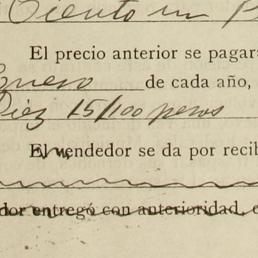 Ciento un P
El precio anterior se pagar
Enero de cada año,
Diez 15/100 pesos
El vendedor se da por recib
dor entregó con anterioridad, e